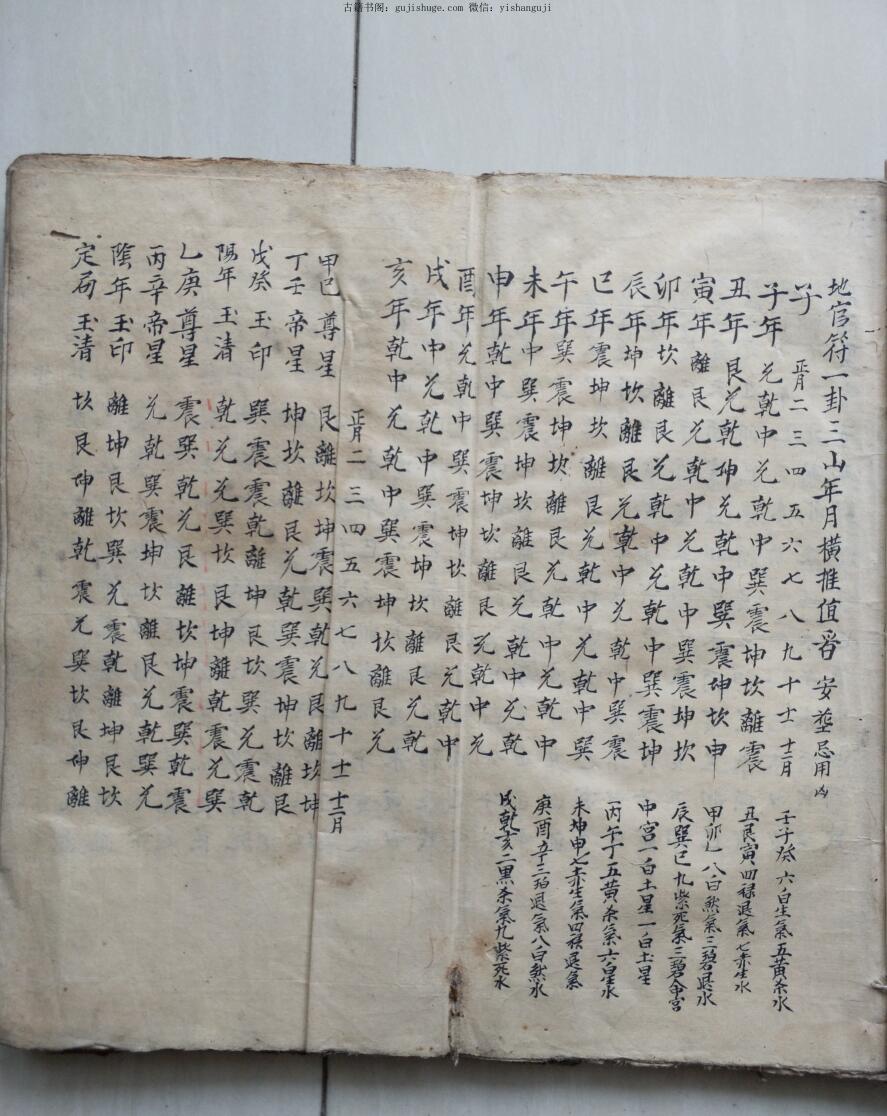 古籍书阁：gujishuge.com 微信：yishanguji
地官符一卦三山年月橫推值 安葬忌用凶
正月二三四五六七八九十十一十二月
子年兊乾中兊乾中巽震坤坎離震
丑年艮兊乾砷兊乾中巽震坤坎申
寅年離艮兊乾中兊乾中巽震坤坎
卯年坎離艮兊乾中兊乾中巽震坤
辰年坤坎離艮兊乾中兊乾中巽震
巳年震坤坎離艮兊乾中兊乾中巽
午年巽震坤坎離艮兊乾中兊乾中
未年中巽震坤坎離艮兊乾中兊乾中兊
申年乾中巽震坤坎離艮兊乾中兊乾
酉年兊乾中巽震坤坎離艮兊乾中
戌年中兊乾中巽震坤坎離艮兊乾
亥年乾中兊乾中巽震坤坎離艮兊
壬子癸六白生氣五黃杀水
丑艮寅四祿退氣七赤生水
甲卯乙八白煞氣三碧退水
辰巽巳九紫死氣三碧命宮
中宮一白土星一白土星
丙午丁五黃杀氣六白星水
未坤申七赤生氣四祿退氣
庚酉辛三碧退氣八白煞水
戌乾亥二黑杀氣九紫死水
正月二三四五六七八九十十一十二月
甲巳尊星艮離坎坤震巽乾兊艮離坎坤
丁壬帝星坤坎離艮兊乾巽震坤坎離艮
戊癸玉印巽震震乾離坤艮坎巽兊震乾
陽年玉清乾兊兊巽坎艮坤離乾震兊巽
乙庚尊星震巽乾兊艮離坎坤震巽乾震
丙辛帝星兊乾巽震坤坎離艮兊乾巽兊
陰年玉印離坤艮坎巽兊震乾離坤艮坎
定局玉清坎艮砷離乾震兊巽坎艮砷離